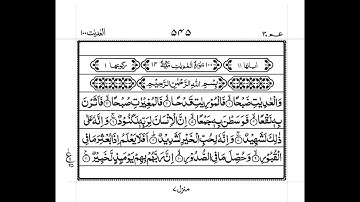 عـم ۳۰ ۵۴۵ العٰدیٰت ۱۰۰
اٰیاتها ۱۱ ۱۰۰ سُوْرَةُ الْعٰدِیٰتِ مَكِّیَّةٌ ۱۴ رکوعها ۱
بِسْمِ اللّٰهِ الرَّحْمٰنِ الرَّحِیْمِ
وَالْعٰدِیٰتِ ضَبْحًا ۝ فَالْمُوْرِیٰتِ قَدْحًا ۝ فَالْمُغِیْرٰتِ صُبْحًا ۝ فَاَثَرْنَ
بِهٖ نَقْعًا ۝ فَوَسَطْنَ بِهٖ جَمْعًا ۝ اِنَّ الْاِنْسَانَ لِرَبِّهٖ لَكَنُوْدٌ ۝ وَاِنَّهٗ عَلٰی
ذٰلِكَ لَشَهِیْدٌ ۝ وَاِنَّهٗ لِحُبِّ الْخَیْرِ لَشَدِیْدٌ ۝ اَفَلَا یَعْلَمُ اِذَا بُعْثِرَ مَا فِی
الْقُبُوْرِ ۝ وَحُصِّلَ مَا فِی الصُّدُوْرِ ۝ اِنَّ رَبَّهُمْ بِهِمْ یَوْمَئِذٍ لَّخَبِیْرٌ ۝
منزل ۷